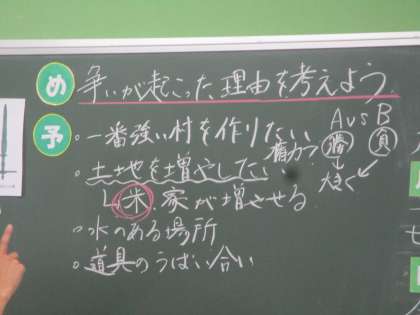 め 争いが起こった理由を考えよう。
予 ・一番強い村を作りたい
権力? AvsB
勝 負
・土地を増やしたい 大きく
↳米、家が増させる
・水のある場所
・道具のうばい合い